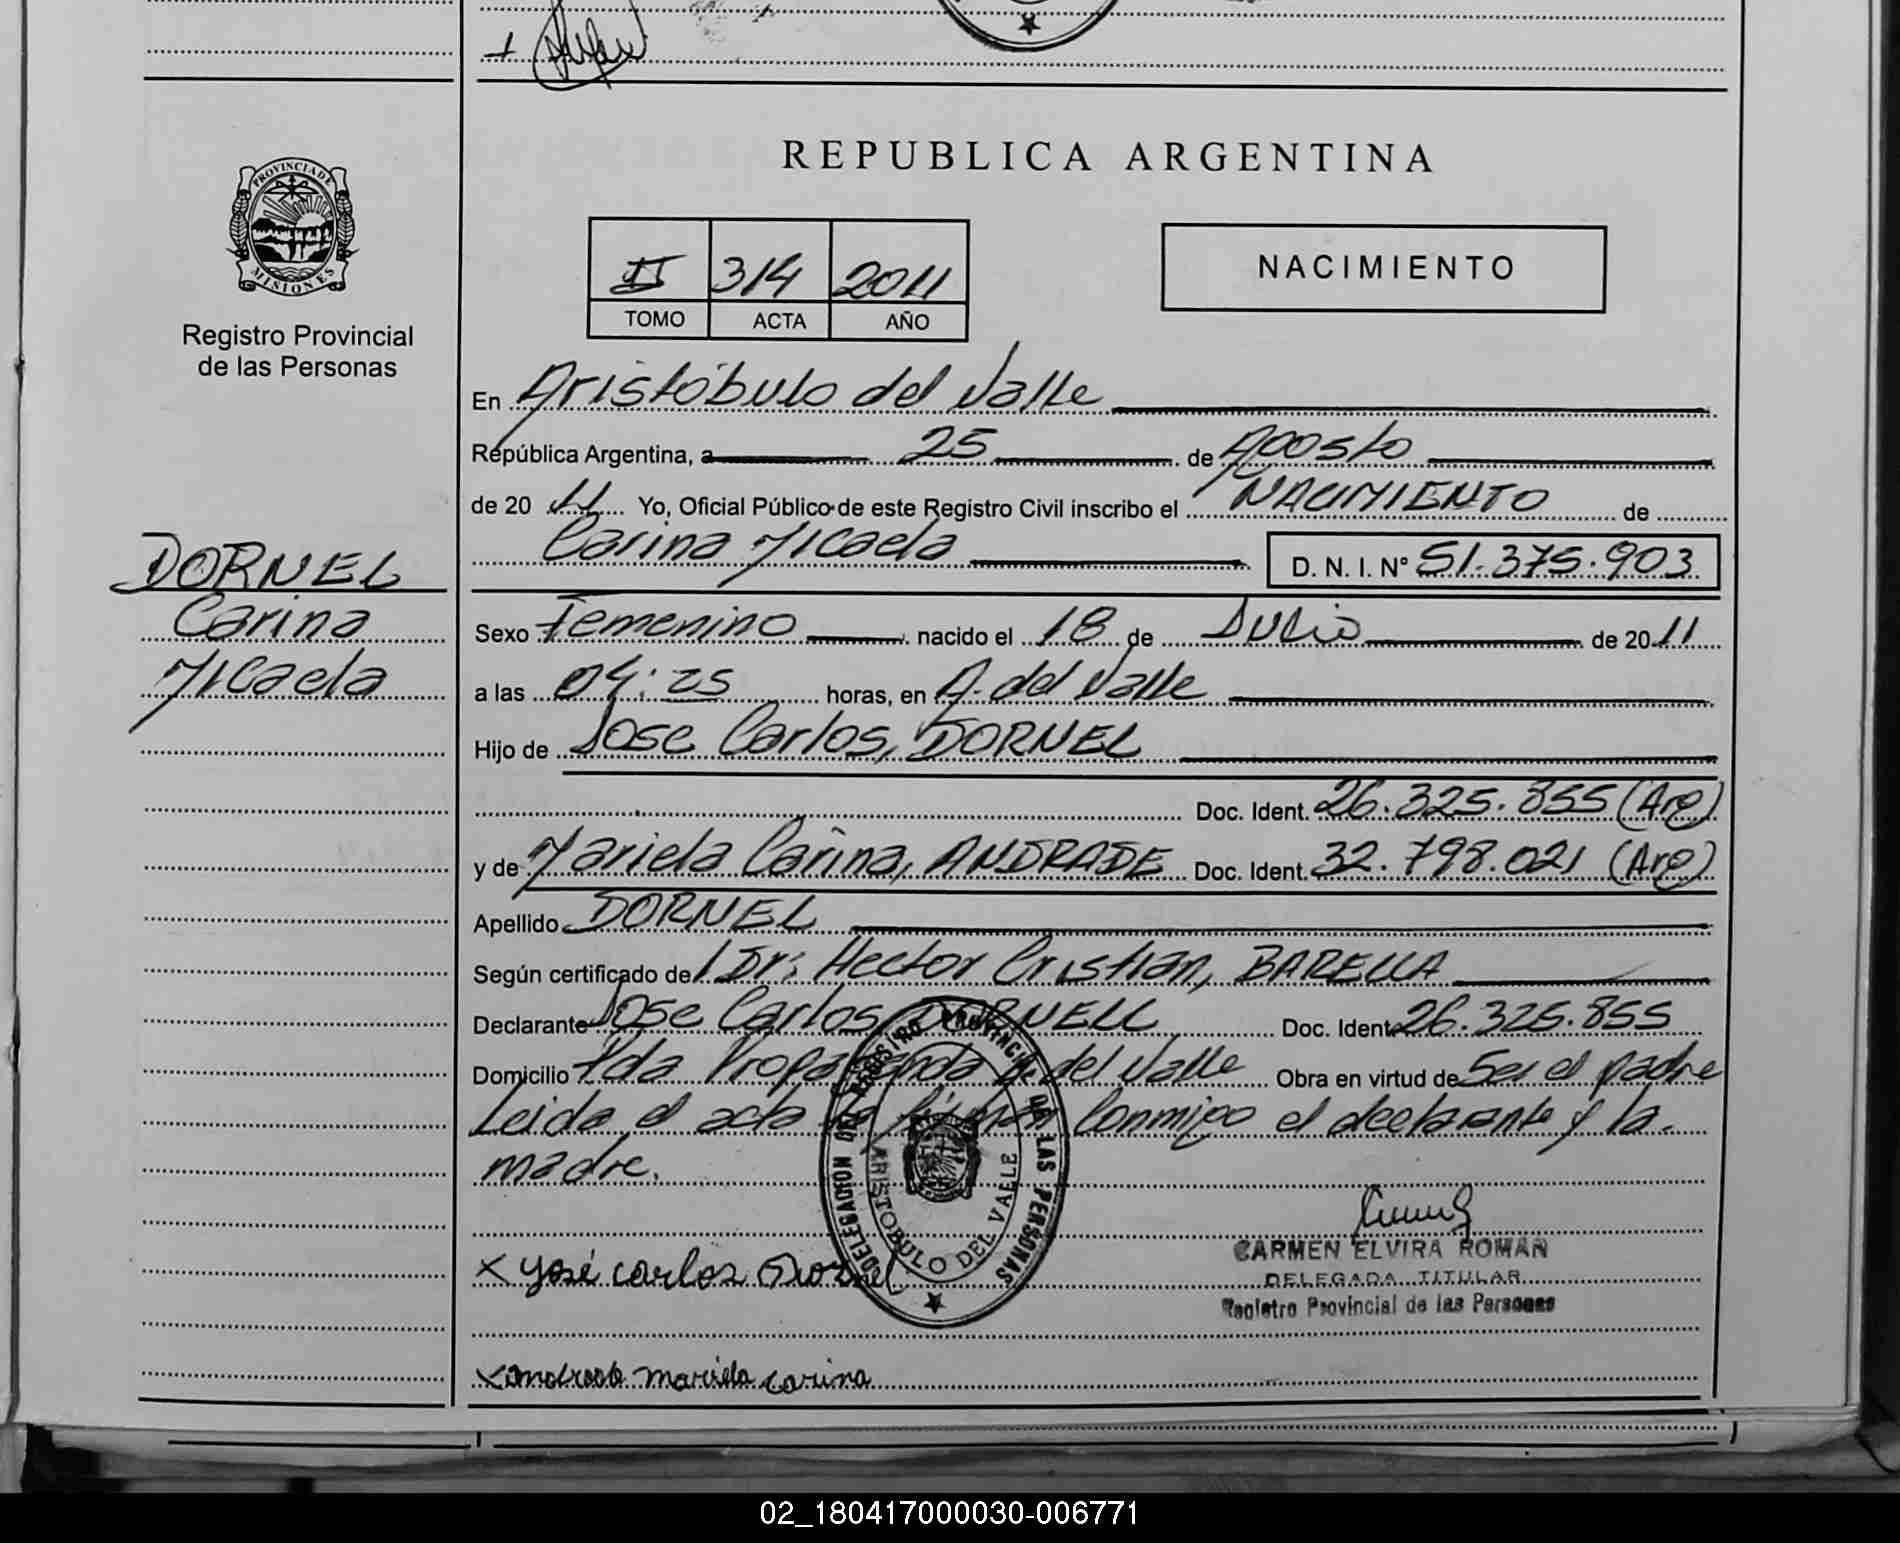 REPUBLICA ARGENTINA
PROVINCIA DE
MISIONES
Registro Provincial
de las Personas
II 314 2011
TOMO ACTA AÑO
NACIMIENTO
En Aristóbulo del Valle
República Argentina, a 25 de Agosto
de 2011 Yo, Oficial Público de este Registro Civil inscribo el NACIMIENTO de
Carina Micaela D. N. I. N° 51.375.903
DORNEL
Carina
Micaela
Sexo Femenino nacido el 18 de Julio de 2011
a las 04:25 horas, en A. del Valle
Hijo de Jose Carlos, DORNEL
Doc. Ident. 26.325.855 (Arg)
y de Mariela Carina, ANDRADE Doc. Ident. 32.798.021 (Arg)
Apellido DORNEL
Según certificado del Dr: Hector Cristian, BARELLA
Declarante Jose Carlos, DORNELL Doc. Ident. 26.325.855
Domicilio Pda Propaganda A. del Valle Obra en virtud de Ser el padre
Leida el acta la firman Conmigo el declarante y la
madre.
DELEGACION DEL REGISTRO PROVINCIAL DE LAS PERSONAS
ARISTOBULO DEL VALLE
CARMEN ELVIRA ROMAN
DELEGADA TITULAR
Registro Provincial de las Personas
x José carlos Dornel
x Andrade mariela carina
02_180417000030-006771